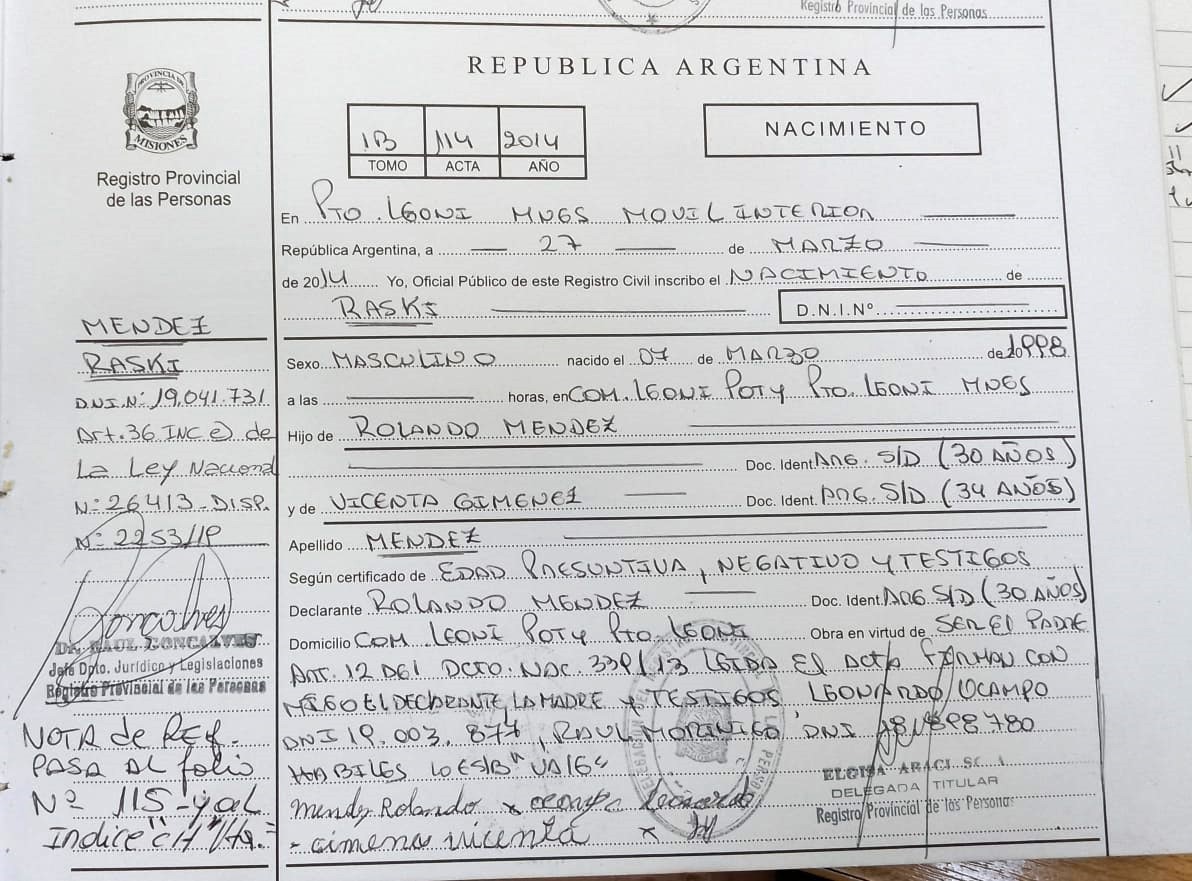 Registro Provincial de las Personas
REPUBLICA ARGENTINA
PROVINCIA DE
MISIONES
Registro Provincial
de las Personas
1B 114 2014
TOMO ACTA AÑO
NACIMIENTO
En PTO. LEONI MNES MOVIL INTERIOR
República Argentina, a 27 de MARZO
de 2014 Yo, Oficial Público de este Registro Civil inscribo el NACIMIENTO de
RASKI D.N.I.Nº
Sexo MASCULINO nacido el 07 de MARZO de 1998
a las horas, en COM. LEONI POTY PTO. LEONI MNES
Hijo de ROLANDO MENDEZ
Doc. Ident. ARG. S/D (30 AÑOS)
y de VICENTA GIMENEZ Doc. Ident. ARG. S/D (34 AÑOS)
Apellido MENDEZ
Según certificado de EDAD PRESUNTIVA, NEGATIVO Y TESTIGOS
Declarante ROLANDO MENDEZ Doc. Ident. ARG S/D (30 AÑOS)
Domicilio COM. LEONI POTY PTO. LEONI Obra en virtud de SER EL PADRE
ART. 12 DEL DCTO. NAC. 339/13 LEIDA EL ACTA FIRMAN CON
MIGO EL DECLARANTE, LA MADRE Y TESTIGOS LEONARDO OCAMPO
DNI 19.003.877, RAUL MORINIGO DNI 898780
HABILES LO E/B "VALE"
Mendez Rolando x ocampo Leonardo
- cimena vicenta x
ELOISA ARACI
DELEGADA TITULAR
Registro Provincial de las Personas
MENDEZ
RASKI
D.N.I.Nº: 19.041.731
Art. 36 INC e) de
La Ley Nacional
Nº: 26413 - DISP.
Nº: 2253/19
Goncalves
DR. RAUL GONCALVES
Jefe Dpto. Jurídico y Legislaciones
Registro Provincial de las Personas
NOTA de REF.
PASA AL folio
Nº 115 - y al
Indice "CH" Vta.=